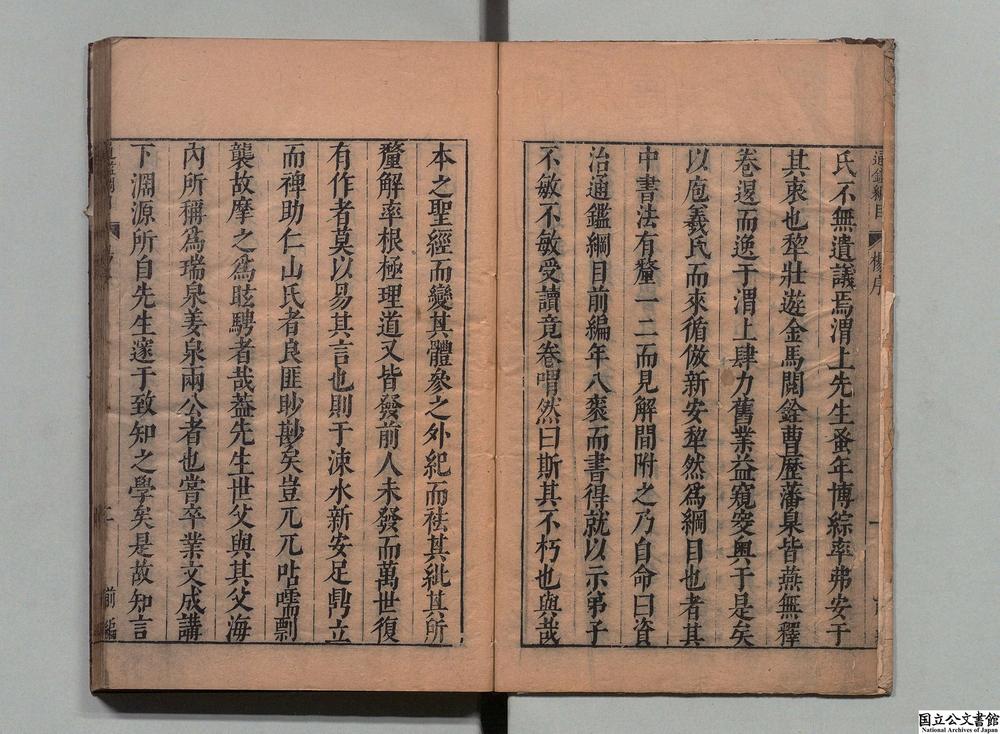 通鑑綱目 楊序
氏不無遺議焉渭上先生蚤年博綜率弗安于
其衷也犂壯遊金馬閱銓曹歷藩臬皆燕無釋
卷遏而逸于渭上肆力舊業益窺突奧于是矣
以庖羲氏而來循倣新安犂然爲綱目也者其
中書法有釐一二而見解間附之乃自命曰資
治通鑑綱目前編年八褏而書得就以示弟子
不敏不敏受讀竟卷喟然曰斯其不朽也與哉
本之聖經而變其體參之外紀而祛其紕其所
釐解率根極理道又皆發前人未發而萬世復
有作者莫以易其言也則于涑水新安足鼎立
而裨助仁山氏者良匪眇尠矣豈兀兀呫嚅剽
襲故摩之爲眩騁者哉葢先生世父與其父海
內所稱爲瑞泉姜泉兩公者也嘗卒業文成講
下淵源所自先生邃于致知之學矣是故知言
二 前編
国立公文書館
National Archives of Japan